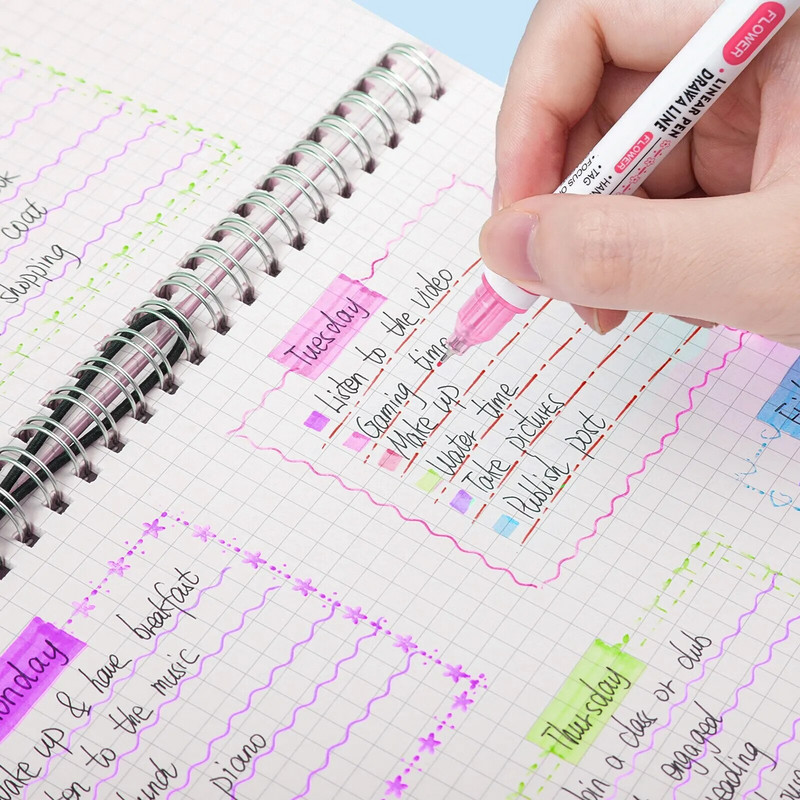 coat
shopping
Tuesday
Listen to the video
Gaming time
Make up
Water time
Take pictures
Publish post
onday
wake up & have breakfast
to the music
piano
Thursday
a class or club
engaged
FLOWER
LINEAR PEN
DRAW A LINE
FLOWER
• TAG
• FOCUS